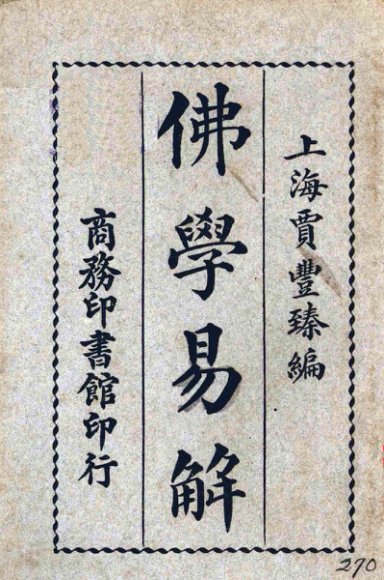 上海賈豐臻編
佛學易解
商務印書館印行
270